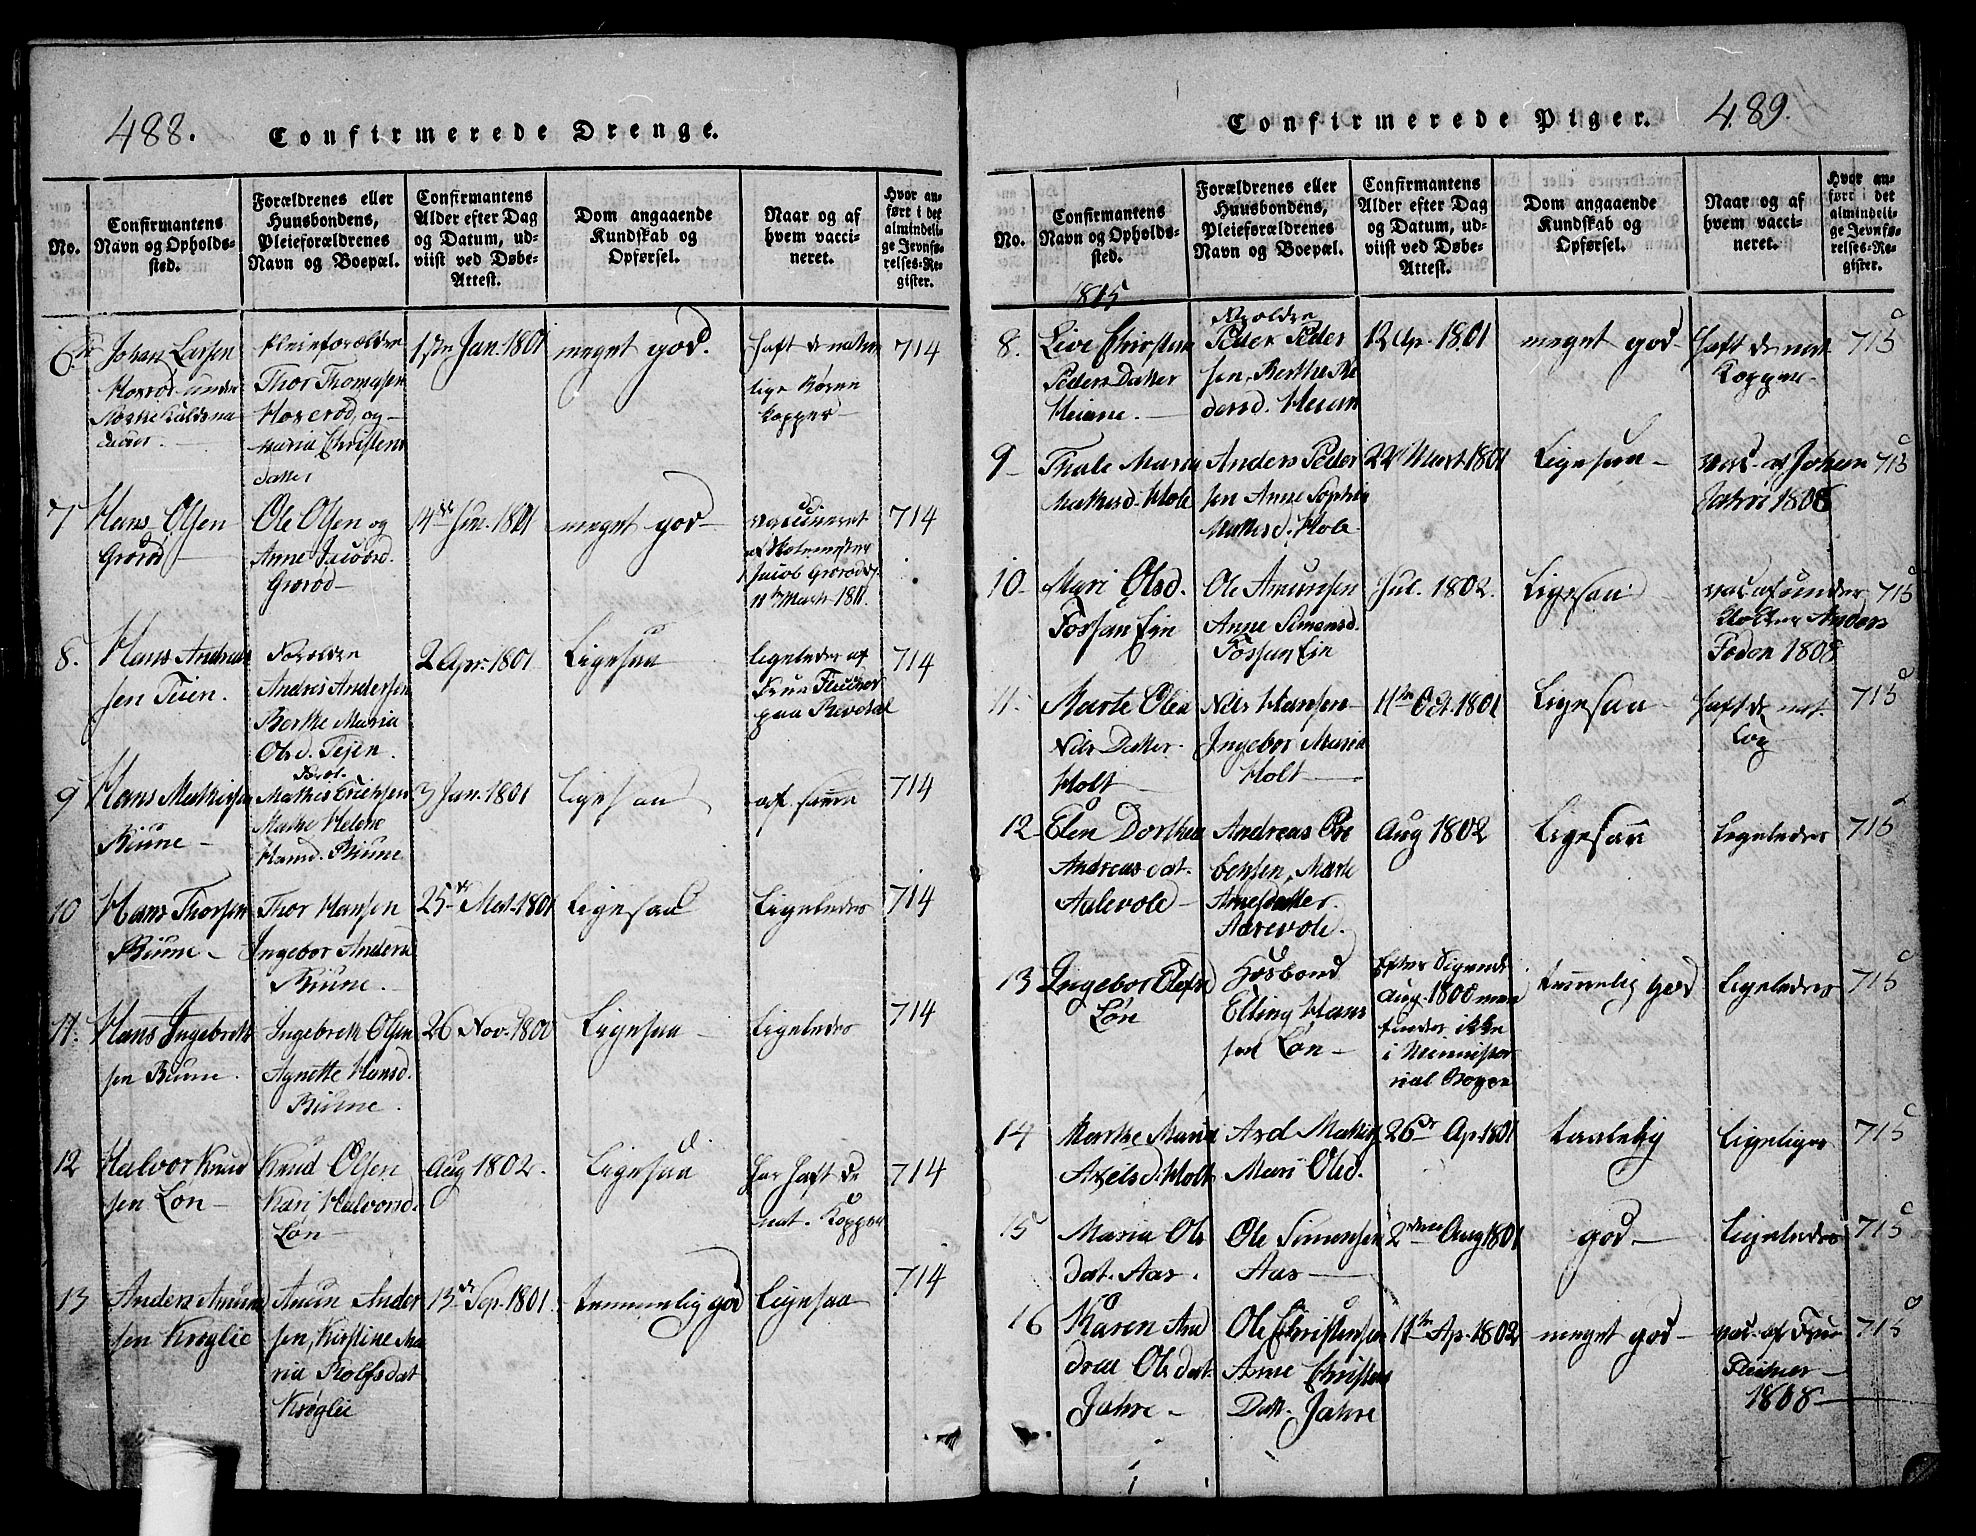 488.
Confirmerede Drenge.
No.
Confirmantens
Navn og Opholds-
sted.
Forældrenes eller
Huusbondens,
Pleieforældrenes
Navn og Boepæl.
Confirmantens
Alder efter Dag
og Datum, ud-
viist ved Døbe-
Attest.
Dom angaaende
Kundskab og
Opførsel.
Naar og af
hvem vacci-
neret.
Hvor an-
ført i det
almindeli-
ge Jevnfø-
relses-Re-
gister.
6
Johan Larsen
Horrød under
Pleieforældre
Thor Thomesen
Horerød og
Maria Christens
datter
1ste Jan. 1801
meget god.
haft de natur
lige
Kopper
714
7
Hans Olsen
Grørød
Ole Olsen og
Anne Jacobsd.
Grørød
14de Jun. 1801
meget god
vaccineret
af Skolemester
Jacob Grørød
11te Mart. 1811.
714
8.
Hans Andreas
sen Teien.
Forældre
Andris Andersen
Berthe Maria
Olsd. Tejen.
2 Apr. 1801
Ligesaa
ligeledes af
Frue Fleischer
paa Revetal
714
9
Hans Mathisen
Biune
Foræl.
Mathis Erichsen
Marthe Helene
Hansd. Biune
3 Jan. 1801
Ligesaa
af samme
714
10
Hans Thorsen
Biune
Thor Hansen
Ingebor Andersd
Biune.
25de Mai 1801
Ligesaa
Ligeledes
714
11.
Hans Ingebreth
sen Biune.
Ingebreth Olsen
Agnette Hansd.
Biune.
26 Nov. 1800
Ligesaa
Ligeledes
714
12
Halvor Knud
sen Løn
Knud Olsen
Kari Halvorsd.
Løn
Aug 1802.
Ligesaa
har haft de
nat. Kopper
714
13
Anders Amund
sen Krøglie
Amun Ander
sen, Kirstine Ma
ria Rolfsdat
Krøglie
13de Sep. 1801.
temmelig god
Ligesaa
714
Confirmerede Piger.
489.
No.
Confirmantens
Navn og Opholds-
sted.
Forældrenes eller
Huusbondens,
Pleieforældrenes
Navn og Boepæl.
Confirmantens
Alder efter Dag
og Datum, ud-
viist ved Døbe-
Attest.
Dom angaaende
Kundskab og
Opførsel.
Naar og af
hvem vacci-
neret.
Hvor an-
ført i det
almindeli-
ge Jevnfø-
relses-Re-
gister.
1815
8.
Live Christine
Peders Datter
Heiane.
Forældre
Peder Peder
sen, Berthe Pe
dersd. Heian
12 Ap. 1801
meget god
haft de nat
Kopper
715
9
Thale Maria
Mathisd. Hole
Anders Peder
sen Anne Sophie
Mathisd. Hole
22 Mart. 1801
Ligesaa
vac. af Johan
Jahre 1808
715
10
Mari Olsd.
Fossan Eie
Ole Amunsen
Anne Simensd.
Fossan Eie
Jul. 1802.
Ligesaa
vac af under
Anders
Foden 1808
715
11.
Marte Olea
Nils Datter.
Holt
Nils Hansen
Ingebor Maria
Holt
11te Oct. 1801
Ligesaa
haft de nat.
Kop
715
12
Elen Dorthea
Andreas dat.
Aalevole
Andreas Pre
bensen, Marte
Arnesdatter.
Aarevole.
Aug 1802
Ligesaa
Ligeledes
715
13
Ingebor Olesd
Løn
Hosbond
Elling Hans
sen Løn
Efter Sigende
Aug. 1800 men
findes ikke
i Ministor
rial Bogen
temmelig god
Ligeledes
715
14
Marthe Maria
Axelsd. Holt
Axel Mathis
Mari Olsd.
26de Ap. 1801
taalelig
Ligeliges
715
15
Maria Ols
dat. Aas.
Ole Simensen
Aas
2den Aug 1801
god
Ligeledes
715
16
Karen An
drea Ols dat.
Jahre
Ole Christensen
Anne Christens
Datt. Jahre
11te Ap. 1802
meget god
vac. af Frue
Fleischer
1808
715